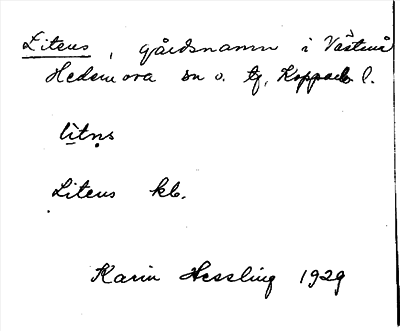 Litens, gårdsnamn i Västerå
Hedemora sn o. tg, Koppab l.
litns
Litens kb.
Karin Hessling 1929